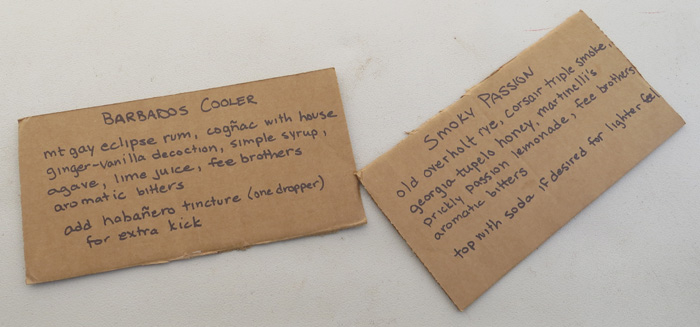 BARBADOS COOLER
mt gay eclipse rum, cogñac with house
ginger-vanilla decoction, simple syrup,
agave, lime juice, fee brothers
aromatic bitters
add habañero tincture (one dropper)
for extra kick
SMOKY PASSION
old overholt rye, corsair triple smoke,
georgia tupelo honey, martinelli's
prickly passion lemonade, fee brothers
aromatic bitters
top with soda if desired for lighter feel